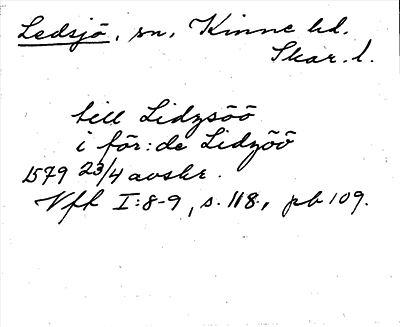 Ledsjö, sn, Kinne hd.
Skar. l.
till Lidzsöö
i för:de Lidzöö
1579 23/4 avskr.
Vfh I:8-9, s. 118, pb 109.